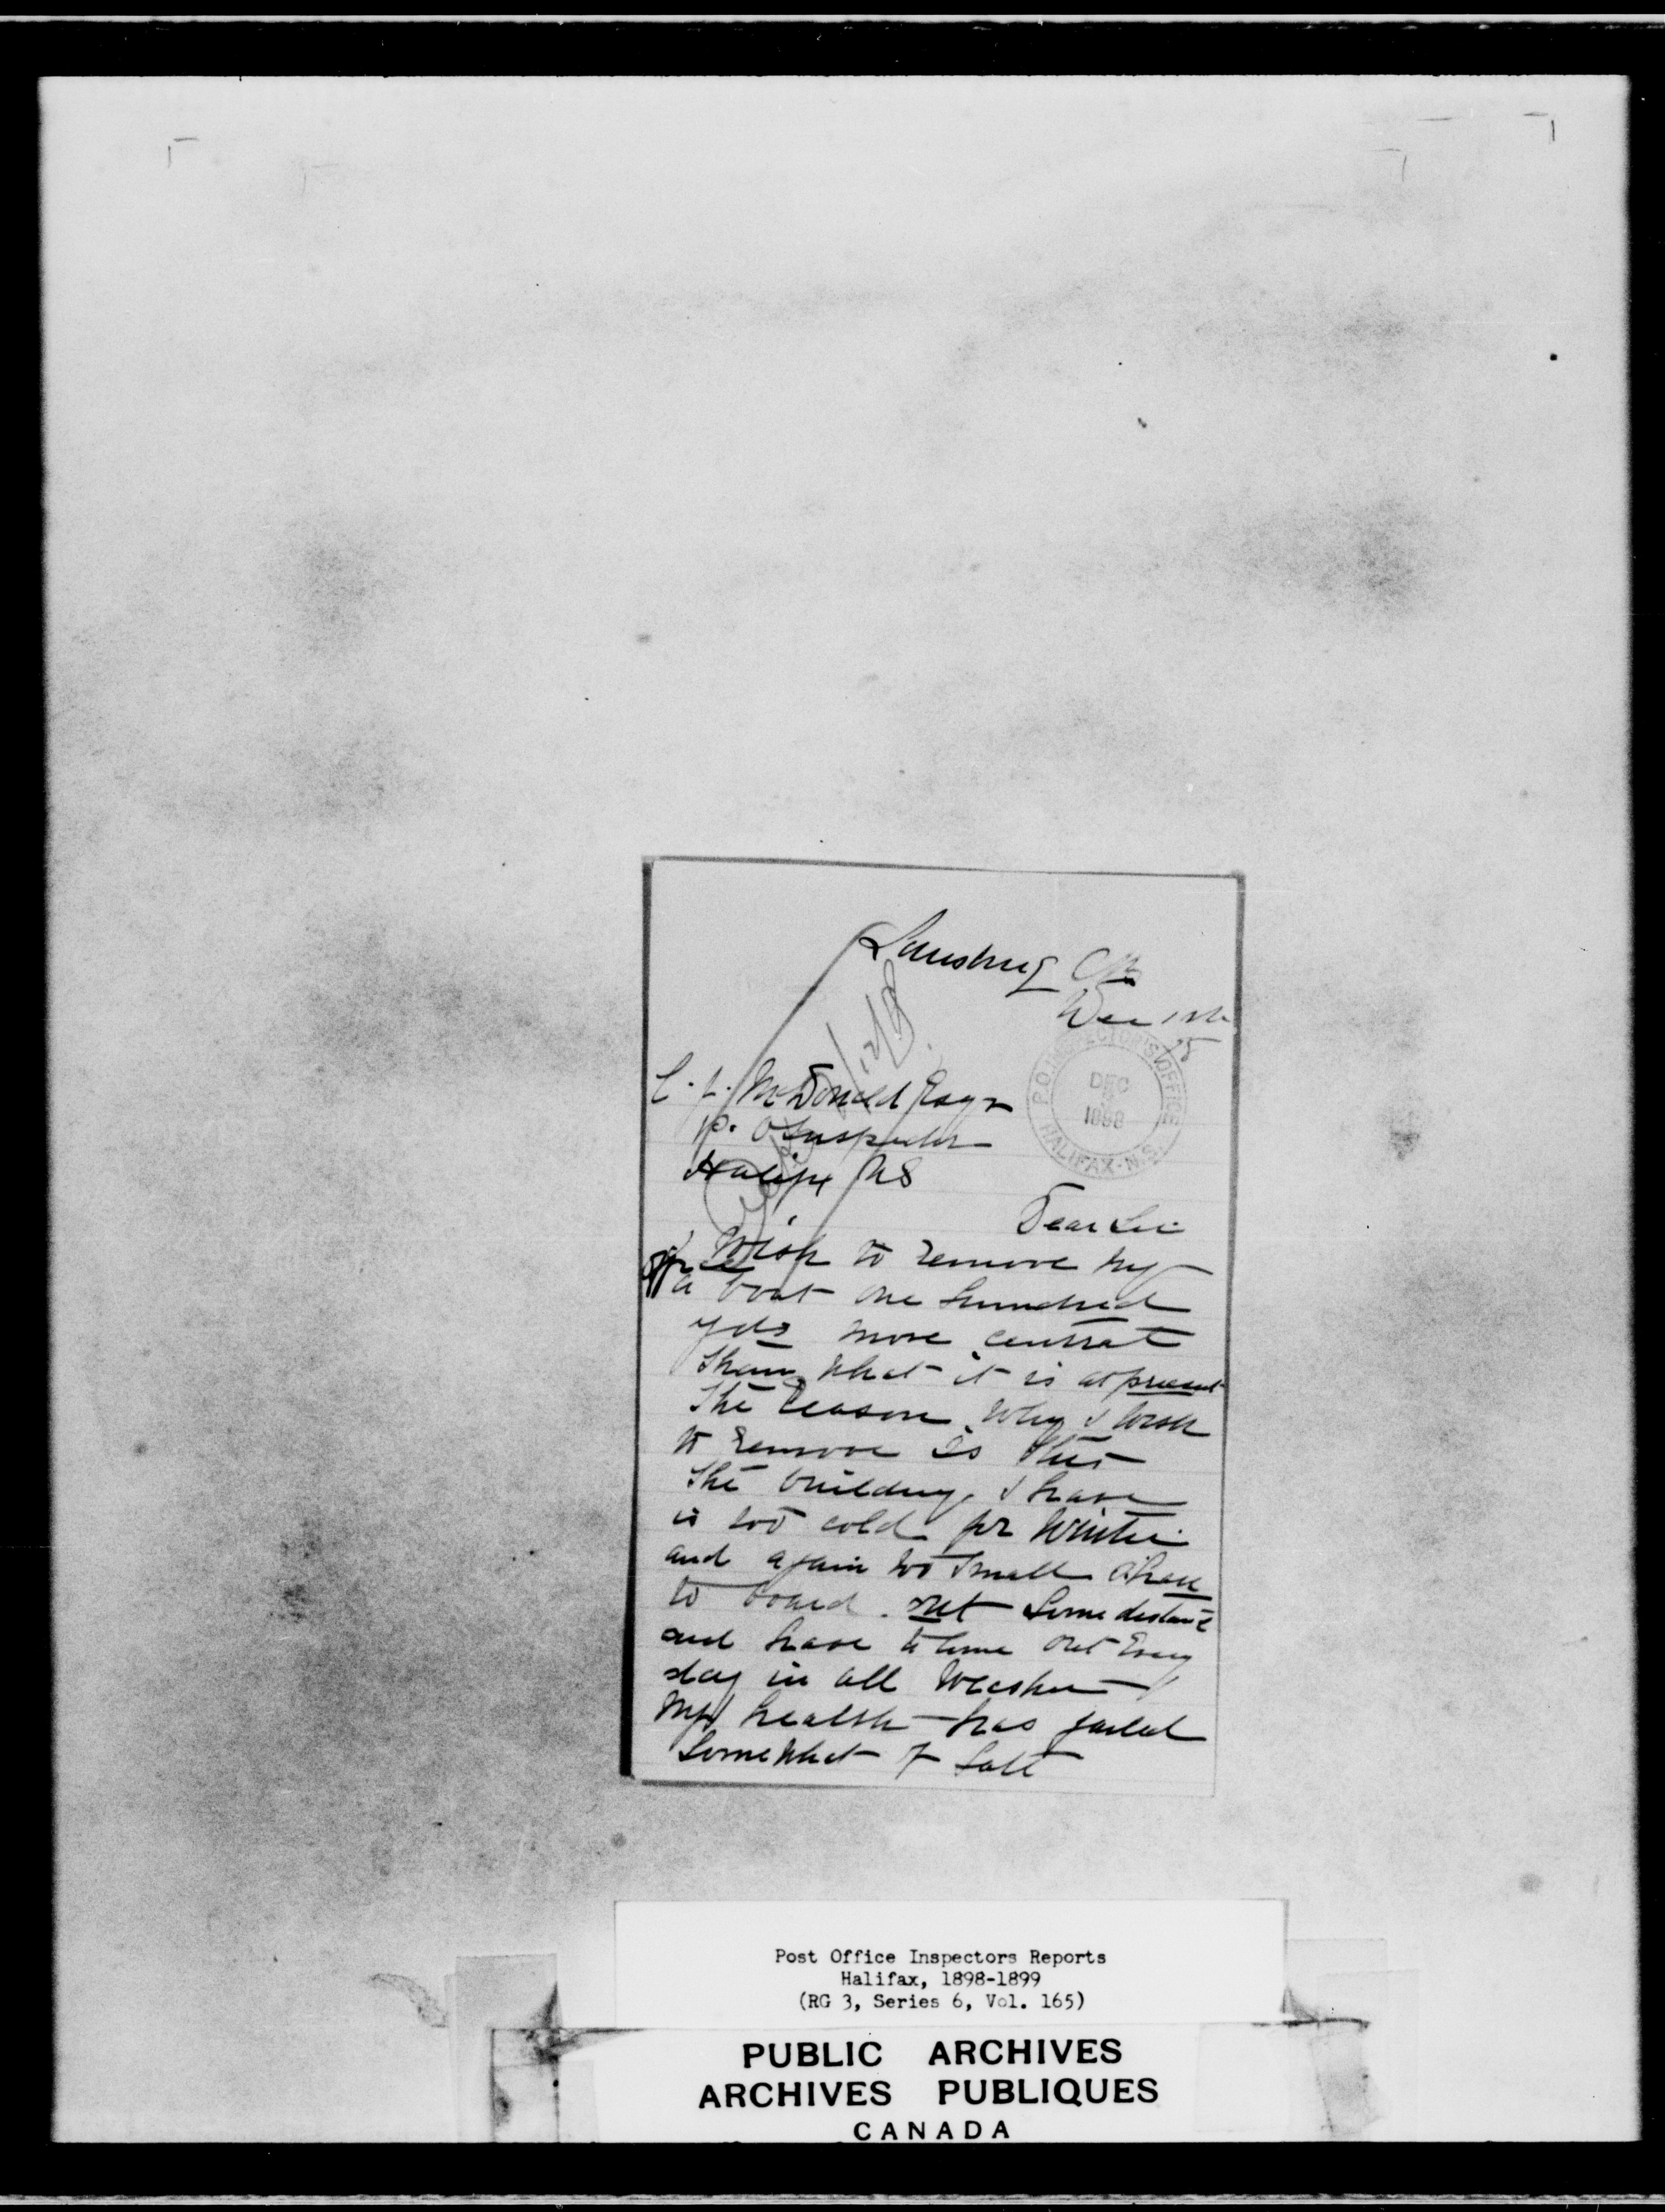 Louisburg CB
Dec 1st
C. J. McDonald Esqr
P. O Inspector
Halifax NS
P.O. INSPECTOR'S OFFICE
DEC
1898
HALIFAX-N.S.
Dear Sir
I Wish to remove my
office a bout one hundred
yds more central
than what it is at present
The reason why I wish
to remove is this
The building I have
is too cold for Winter
and again too small I have
to board out some distance
and have to come out Every
day in all Weather
My health has failed
Somewhat of late
Post Office Inspectors Reports
Halifax, 1898-1899
(RG 3, Series 6, Vol. 165)
PUBLIC ARCHIVES
ARCHIVES PUBLIQUES
CANADA